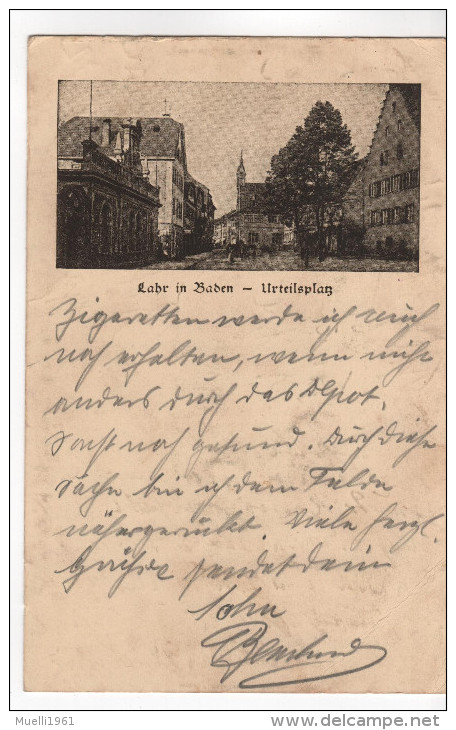 Lahr in Baden – Urteilsplatz
Zigaretten werde ich auch
noch erhalten, wenn nicht
anders durch das Depot.
Sonst noch gesund. Durch diese
Sache bin ich dem Felde
näher gerückt. Viele herzl.
Grüße sendet dein
Sohn
Muelli1961
www.delcampe.net